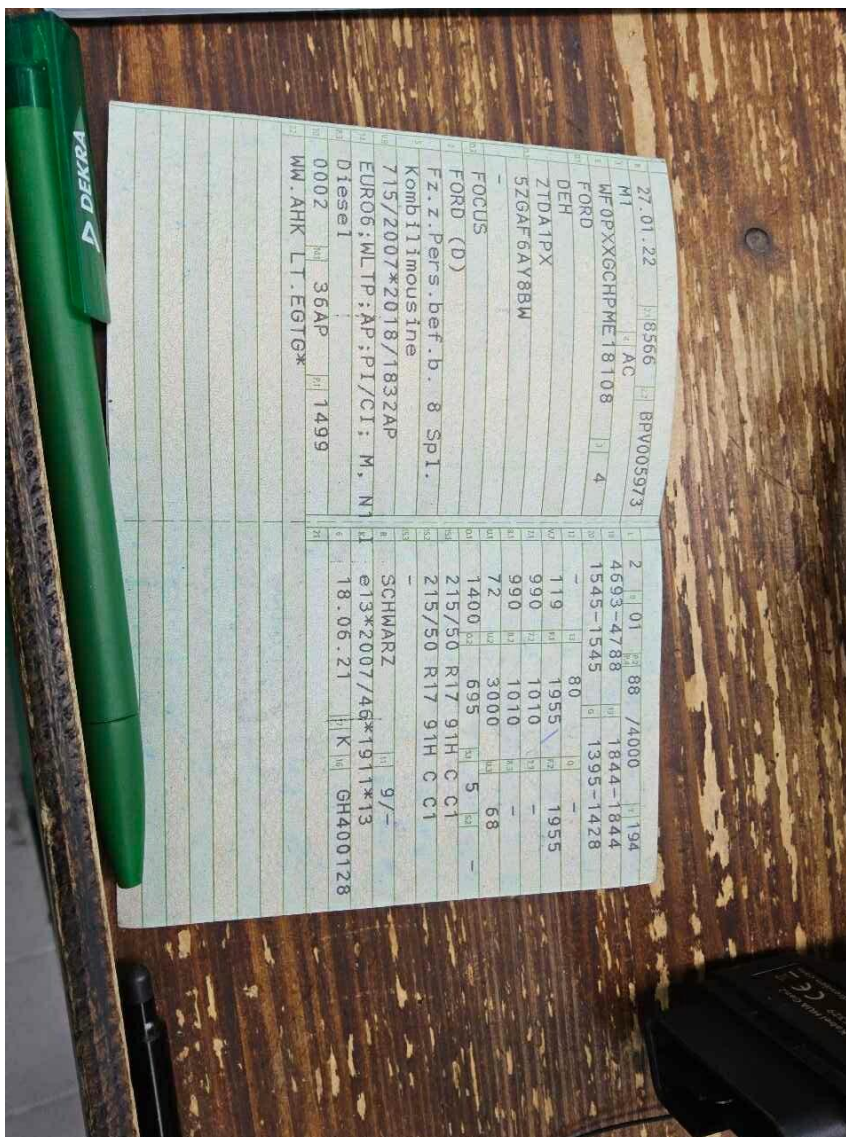 27.01.22 8566 BPV005973
M1 AC
WF0PXXGCHPME18108 4
FORD
DEH
ZTDA1PX
5ZGAF6AY8BW
-
FOCUS
FORD (D)
Fz.z.Pers.bef.b. 8 Spl.
Kombilimousine
715/2007*2018/1832AP
EURO6;WLTP;AP;PI/CI; M, N1 I
Diesel
0002 36AP 1499
WW.AHK LT.EGTG*
2 01 88 /4000 194
4693-4788 1844-1844
1545-1545 1395-1428
- 80 -
119 1955 1955
990 1010 -
990 1010 -
72 3000 68
1400 695 5 -
215/50 R17 91H C C1
215/50 R17 91H C C1
-
SCHWARZ 9/-
e13*2007/46*1911*13
18.06.21 K GH400128
DEKRA